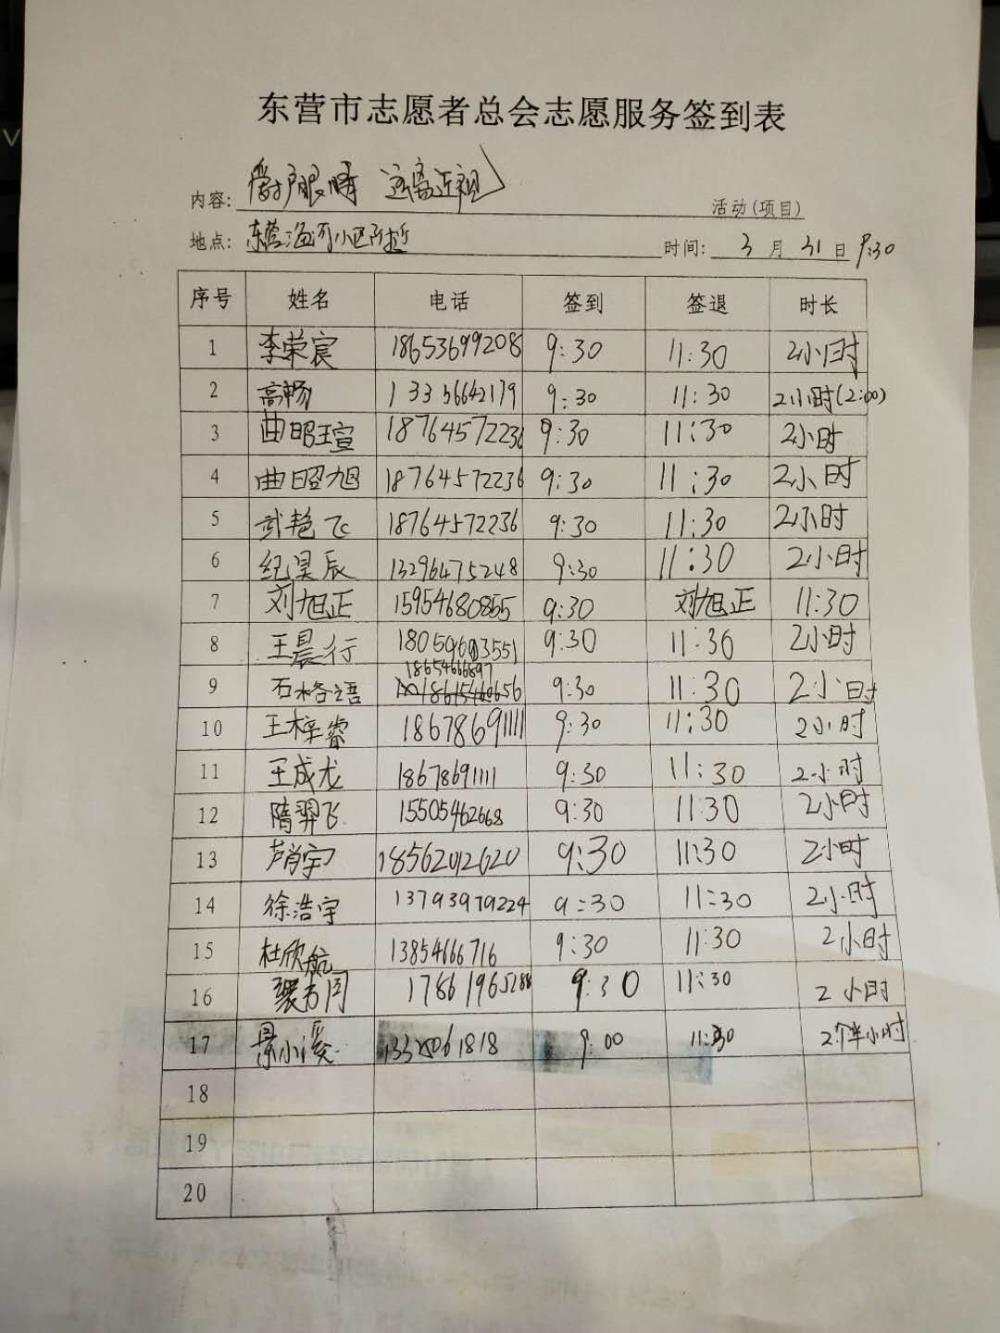 东营市志愿者总会志愿服务签到表
内容: 爱护眼睛 远离近视 活动(项目)
地点: 东营海河小区 时间: 3月31日 9:30
序号 姓名 电话 签到 签退 时长
1 李荣宸 18653699208 9:30 11:30 2小时
2 高畅 13356642179 9:30 11:30 2小时(2:00)
3 曲昭瑄 18764572236 9:30 11:30 2小时
4 曲昭旭 18764572236 9:30 11:30 2小时
5 武艳飞 18764572236 9:30 11:30 2小时
6 纪昊辰 13296475248 9:30 11:30 2小时
7 刘旭正 15954680855 9:30 刘旭正 11:30
8 王晨行 18059603551 9:30 11:30 2小时
18654666897
9 石格语 9:30 11:30 2小时
10 王梓睿 18678691111 9:30 11:30 2小时
11 王成龙 18678691111 9:30 11:30 2小时
12 隋羿飞 15505462668 9:30 11:30 2小时
13 芦肖宇 18562012620 9:30 11:30 2小时
14 徐浩宇 13793979224 9:30 11:30 2小时
15 杜欣航 13854666716 9:30 11:30 2小时
16 17861965288 9:30 11:30 2小时
17 景小溪 9:00 11:30 2个半小时
18
19
20